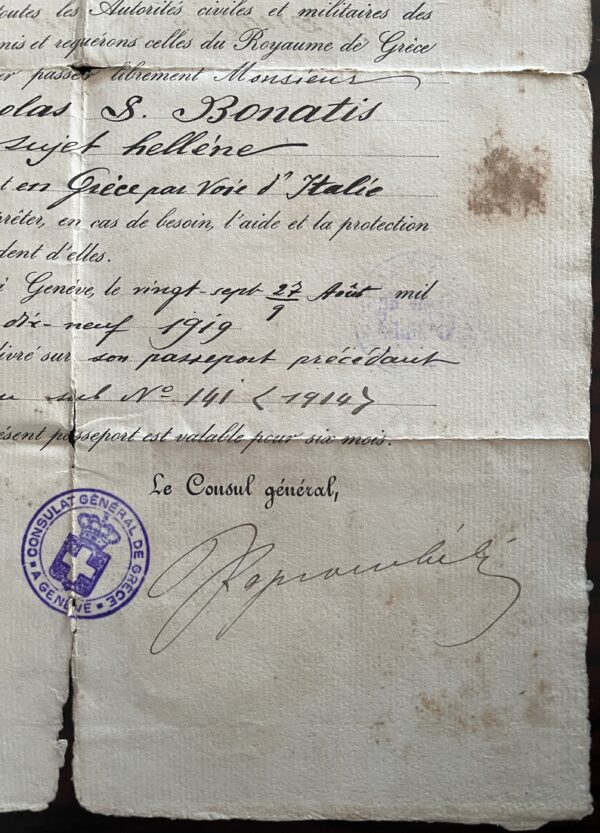 toutes les Autorités civiles et militaires des
mis et requérons celles du Royaume de Grèce
er passer librement Monsieur
olas S. Bonatis
sujet hellène
t en Grèce par Voie d'Italie
prêter, en cas de besoin, l'aide et la protection
dent d'elles.
i Genève, le vingt-sept 27/9 Août mil
dix-neuf 1919
ivré sur son passeport précédant
u sub Nº 141 (1914)
ésent passeport est valable pour six mois.
Le Consul général,
CONSULAT GÉNÉRAL DE GRÈCE
A GENÈVE